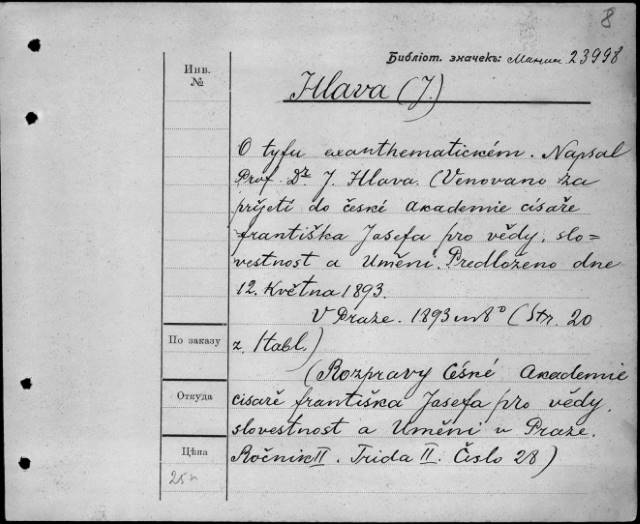 8
Библіот. значекъ: 23998
Инв.
№
Hlava (J.)
O tyfu exanthematickém. Napsal
Prof. Dr. J. Hlava. (Venovano za
prijeti do české akademie cisaře
františka Josefa pro vědy, slo=
vestnost a Uměni. Predloženo dne
12. Května 1893.
V Praze. 1893 in 8° (Str. 20
По заказу
z. 1 tabl.)
(Rozpravy České Akademie
Откуда
cisařě františka Josefa pro vědy,
slovestnost a Uměni v Praze.
Цѣна
Ročnik II. Trida II. Čislo 28)
25к